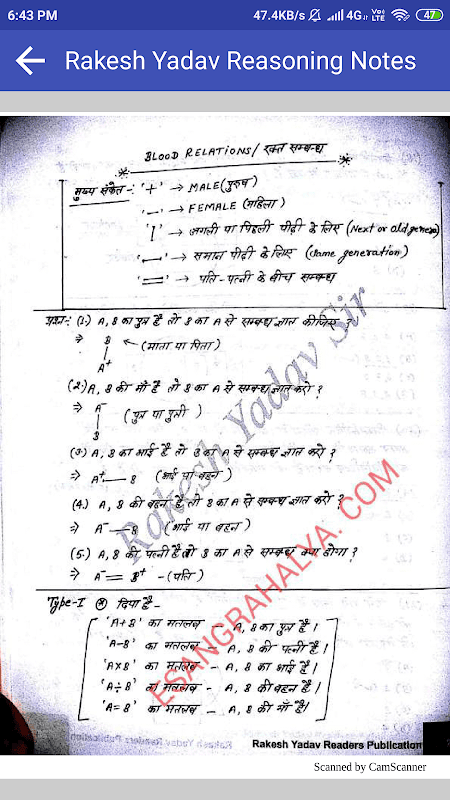 6:43 PM 47.4KB/s 4G VoLTE 47
Rakesh Yadav Reasoning Notes
BLOOD RELATIONS/ रक्त सम्बन्ध
मुख्य संकेत :- '+' → MALE (पुरुष)
'-' → FEMALE (महिला)
'|' → अगली या पिछली पीढ़ी के लिए (Next or old genera
'—' → समान पीढ़ी के लिए (Same generation)
'=' → पति-पत्नी के बीच सम्बन्ध
प्रश्न:- (1.) A, B का पुत्र है तो B का A से सम्बन्ध ज्ञात कीजिए ?
⇒ B ← (माता या पिता)
|
A+
(2.) A, B की माँ है तो B का A से सम्बन्ध ज्ञात करो ?
⇒ A- (पुत्र या पुत्री)
|
B
(3) A, B का भाई है तो B का A से सम्बन्ध ज्ञात करो ?
⇒ A+ — B (भाई या बहन)
(4.) A, B की बहन है तो B का A से सम्बन्ध ज्ञात करो ?
⇒ A- — B (भाई या बहन)
(5.) A, B की पत्नी है तो B का A से सम्बन्ध क्या होगा ?
⇒ A- = B+ - (पति)
Type-I * दिया है -
'A+B' का मतलब - A, B का पुत्र है।
'A-B' का मतलब - A, B की पत्नी है।
'A×B' का मतलब - A, B का भाई है।
'A÷B' का मतलब - A, B की बहन है।
'A=B' का मतलब - A, B की माँ है।
Rakesh Yadav Sir
ESANGRAHALYA.COM
Rakesh Yadav Readers Publication
Scanned by CamScanner